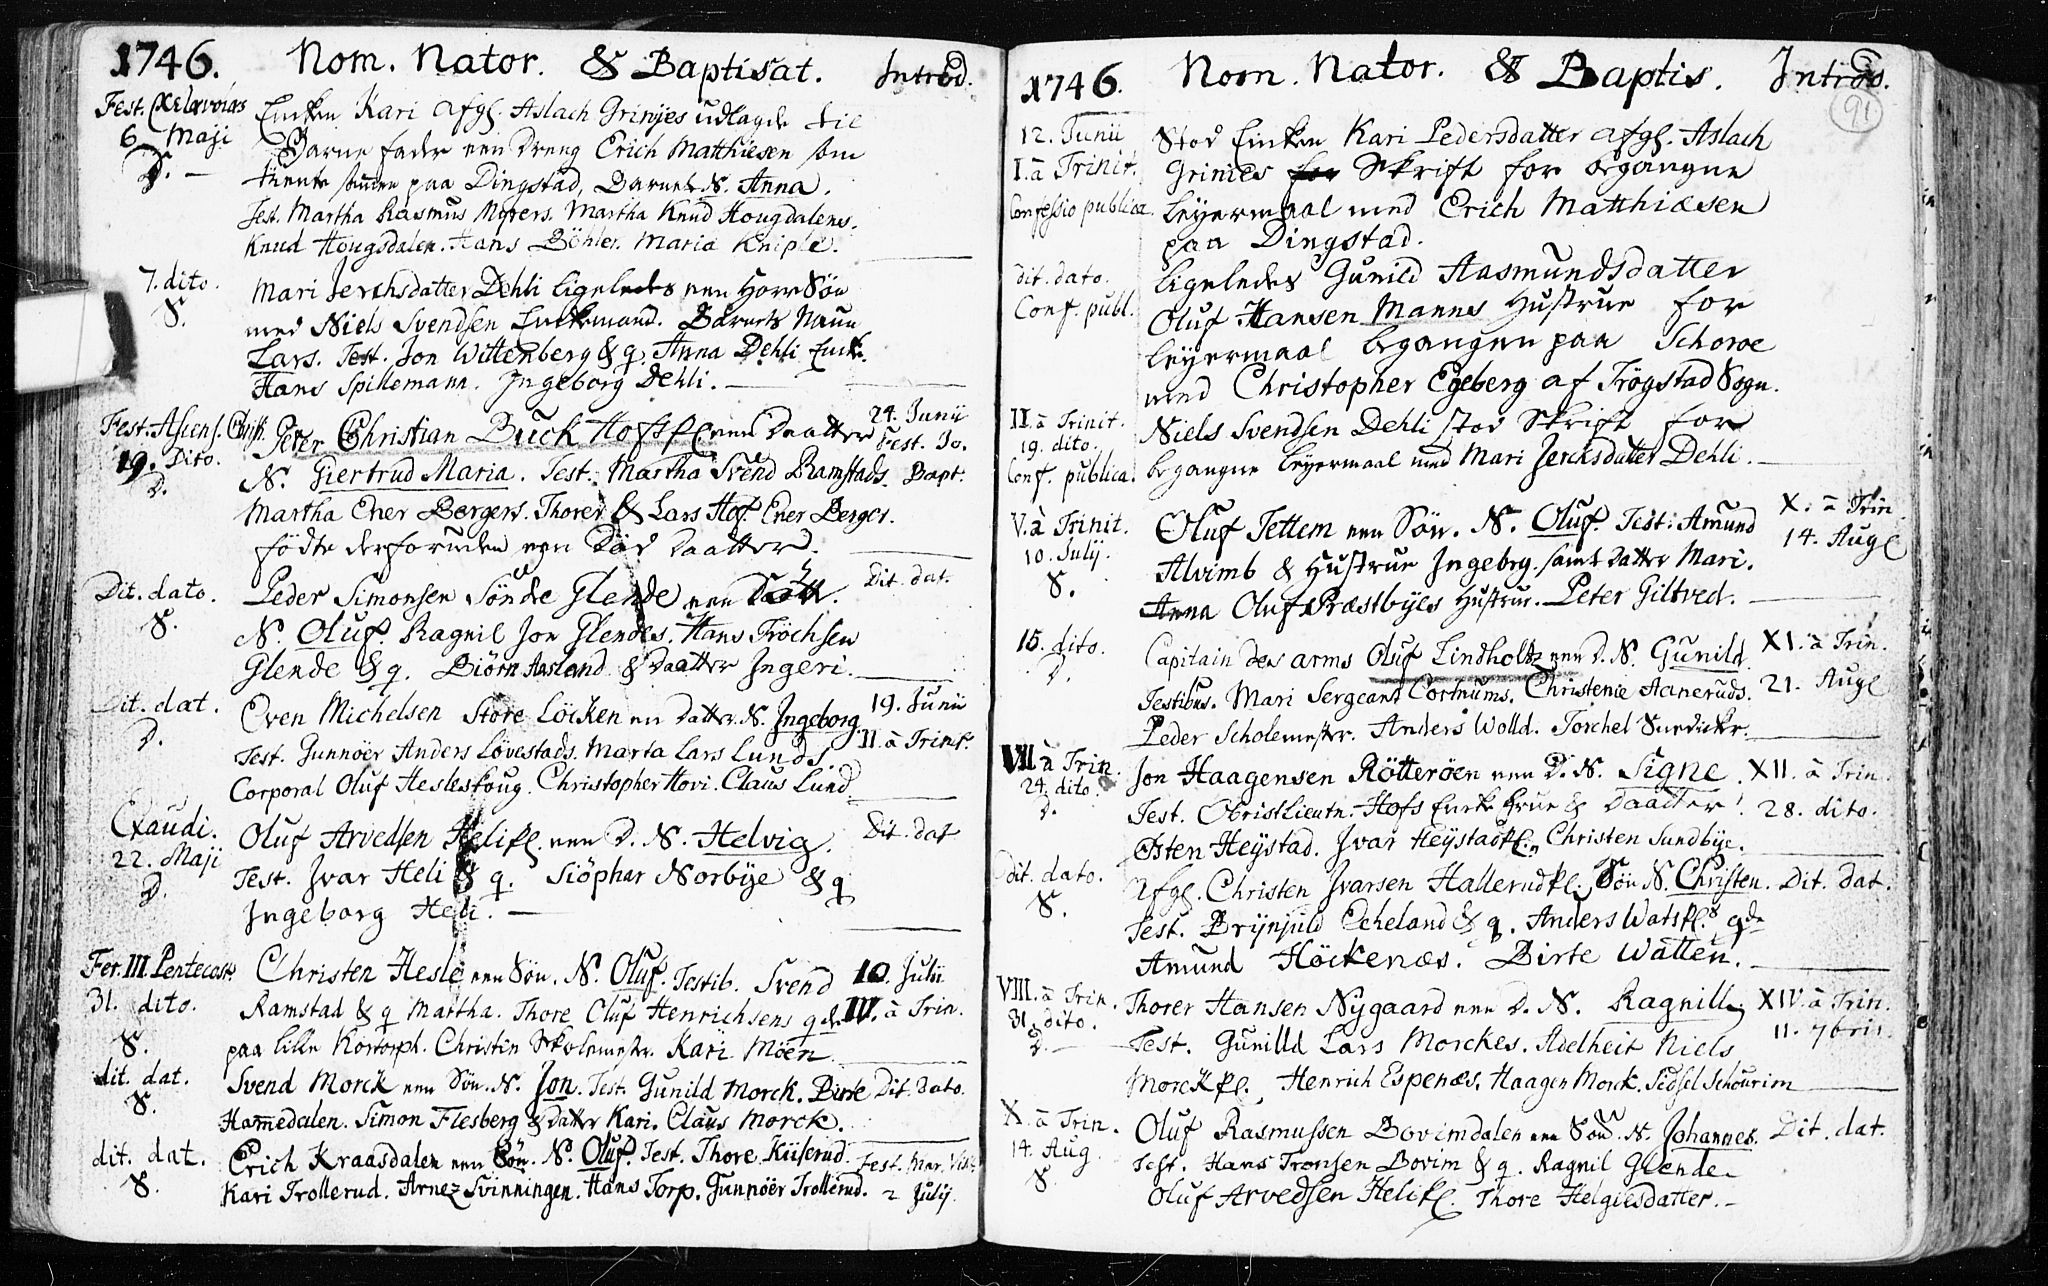 1746. Nom. Nator. & Baptisat. Introd.
Fest.
6 Maji
D. —
Encken Kari afgl. Aslach Grinjes udlagde til
Barne fader een Dreng Erich Matthiesen som
tiente paa Dingstad, Barnets N. Anna.
Test. Martha Rasmus Moeers. Martha Knud Hougdalens.
Knud Hougsdalen. Hans Böhler. Maria Kniple.
7. dito.
S.
Mari Jerchsdatter Dehli ligeledes een Hore Sön
med Niels Svendsen Enckemand. Barnets Naun
Lars. Test. Jon Wittenberg & q. Anna Dehli Encke.
Hans Spillemann. Ingeborg Dehli. —
Fest. Ascens. Christi.
19. Dito.
D.
Peter Christian Buck Hofspl een Daatter
N. Giertrud Maria. Test. Martha Svend Ramstads.
Martha Ener Bergers. Thorer & Lars Hof. Ener Berger.
födte derforuden een Död Daatter.
24. Junii
Fest. Jo.
Bapt.
Dit. dato.
S.
Peder Simonsen Söndre Glende een
N. Oluf. Ragnil Jon Glendes. Hans Tröchsen
Glende & q. Biörn Aasland & Daatter Ingeri.
Dit. dat.
Dit. dat.
D.
Even Michelsen Store Löcken en Datter N. Ingeborg.
Test. Gunnöer Anders Lövestads. Marta Lars Lunds.
Corporal Oluf Hesleskoug. Christopher Hovi. Claus Lund
19. Junii
II. à Trinit.
Exaudi.
22. Maji
D.
Oluf Arvedsen Helipl. een D. N. Helvig.
Test. Ivar Heli & q. Siöphar Norbye & q
Ingeborg Heli. —
Dit. dat
Fer. III. Pentecost.
31. dito.
S.
Christen Hesle een Sön. N. Oluf. Testib. Svend
Ramstad & q Martha. Thore Oluf Henrichsens qde
paa lille Kortorph. Christen Skolemester. Kari Möen
10. Julii
IV. à Trin.
dit. dat.
S.
Svend Morck een Sön. N. Jon. Test. Gunild Morck. Birte
Hamedalen. Simon Flesberg & Datter Kari. Claus Morck.
Dit. dato.
dit. dat.
S.
Erich Kraasdalen een Sön. N. Oluf. Test. Thore Kiiserud
Kari Trollerud. Arnez Svinningen. Hans Torp. Gunnöer Trollerud.
Fest. Mar. Vis.
2 Julij.
1746. Nom. Nator. & Baptis. Introd.
91
12. Junii
I. à Trinit.
Confessio publica.
Stod Encken Kari Pedersdatter afgl. Aslach
Grinies for Skrift for begangne
Leyermaal med Erich Matthiæsen
paa Dingstad.
dit. dato.
Conf. publ.
Ligeledes Gunild Aasmundsdatter
Oluf Hansen Mannes Hustrue for
Leyermaal begangen paa Schove
med Christopher Egeberg af Trögstad Sogn.
II. à Trinit.
19. dito.
Conf. publica.
Niels Svendsen Dehli stod Skrift for
begangne Leyermaal med Mari Jerchsdatter Dehli. —
V. à Trinit.
10. Julij.
S.
Oluf Tettem een Sön. N. Oluf. Test: Amund
Alvimb & Hustrue Ingebrg. samt datter Mari.
Anna Oluf Præstbyes Hustrue. Peter Giltved.
X. à Trin
14. Augl
15. dito.
D.
Capitain des arms Oluf Lindholtz een D. N. Gunild.
Testibus. Mari Sergeant Cortnums. Christenie Aaneruds.
Peder Scholemester. Anders Wolld. Torchel Snedicker.
XI. à Trin.
21. Augl
VII à Trin
24. dito.
D.
Jon Haagensen Rötteröen een D. N. Signe.
Test. Obristlieutn. Hofs Encke Frue & Daatter.
Östen Heystad. Ivar Heystadpl. Christen Sundbye.
XII. à Trin.
28. dito.
dit. dato.
S.
Afgl. Christen Ivarsen Hallerudpl. Sön N. Christen.
Test. Brynjuld Echeland & q. Anders Watspl.s qde
Amund Höckenæs. Birte Watten.
Dit. dat.
VIII. à Trin.
31. dito.
D.
Thorer Hansen Nygaard een D. N. Ragnill.
Test. Gunilld Lars Morckes. Adelheit Niels
Morckpl. Henrich Espenæs. Haagen Morck. Sidsel Schourim
XIV. à Trin.
11. 7bris.
X. à Trin.
14. Aug
S.
Oluf Rasmussen Bovimdalen een Sön. N. Johannes.
Test. Hans Tronsen Bovim & q. Ragnil Glende.
Oluf Arvedsen Helipl. Thore Helgiesdatter. —
Dit. dat.